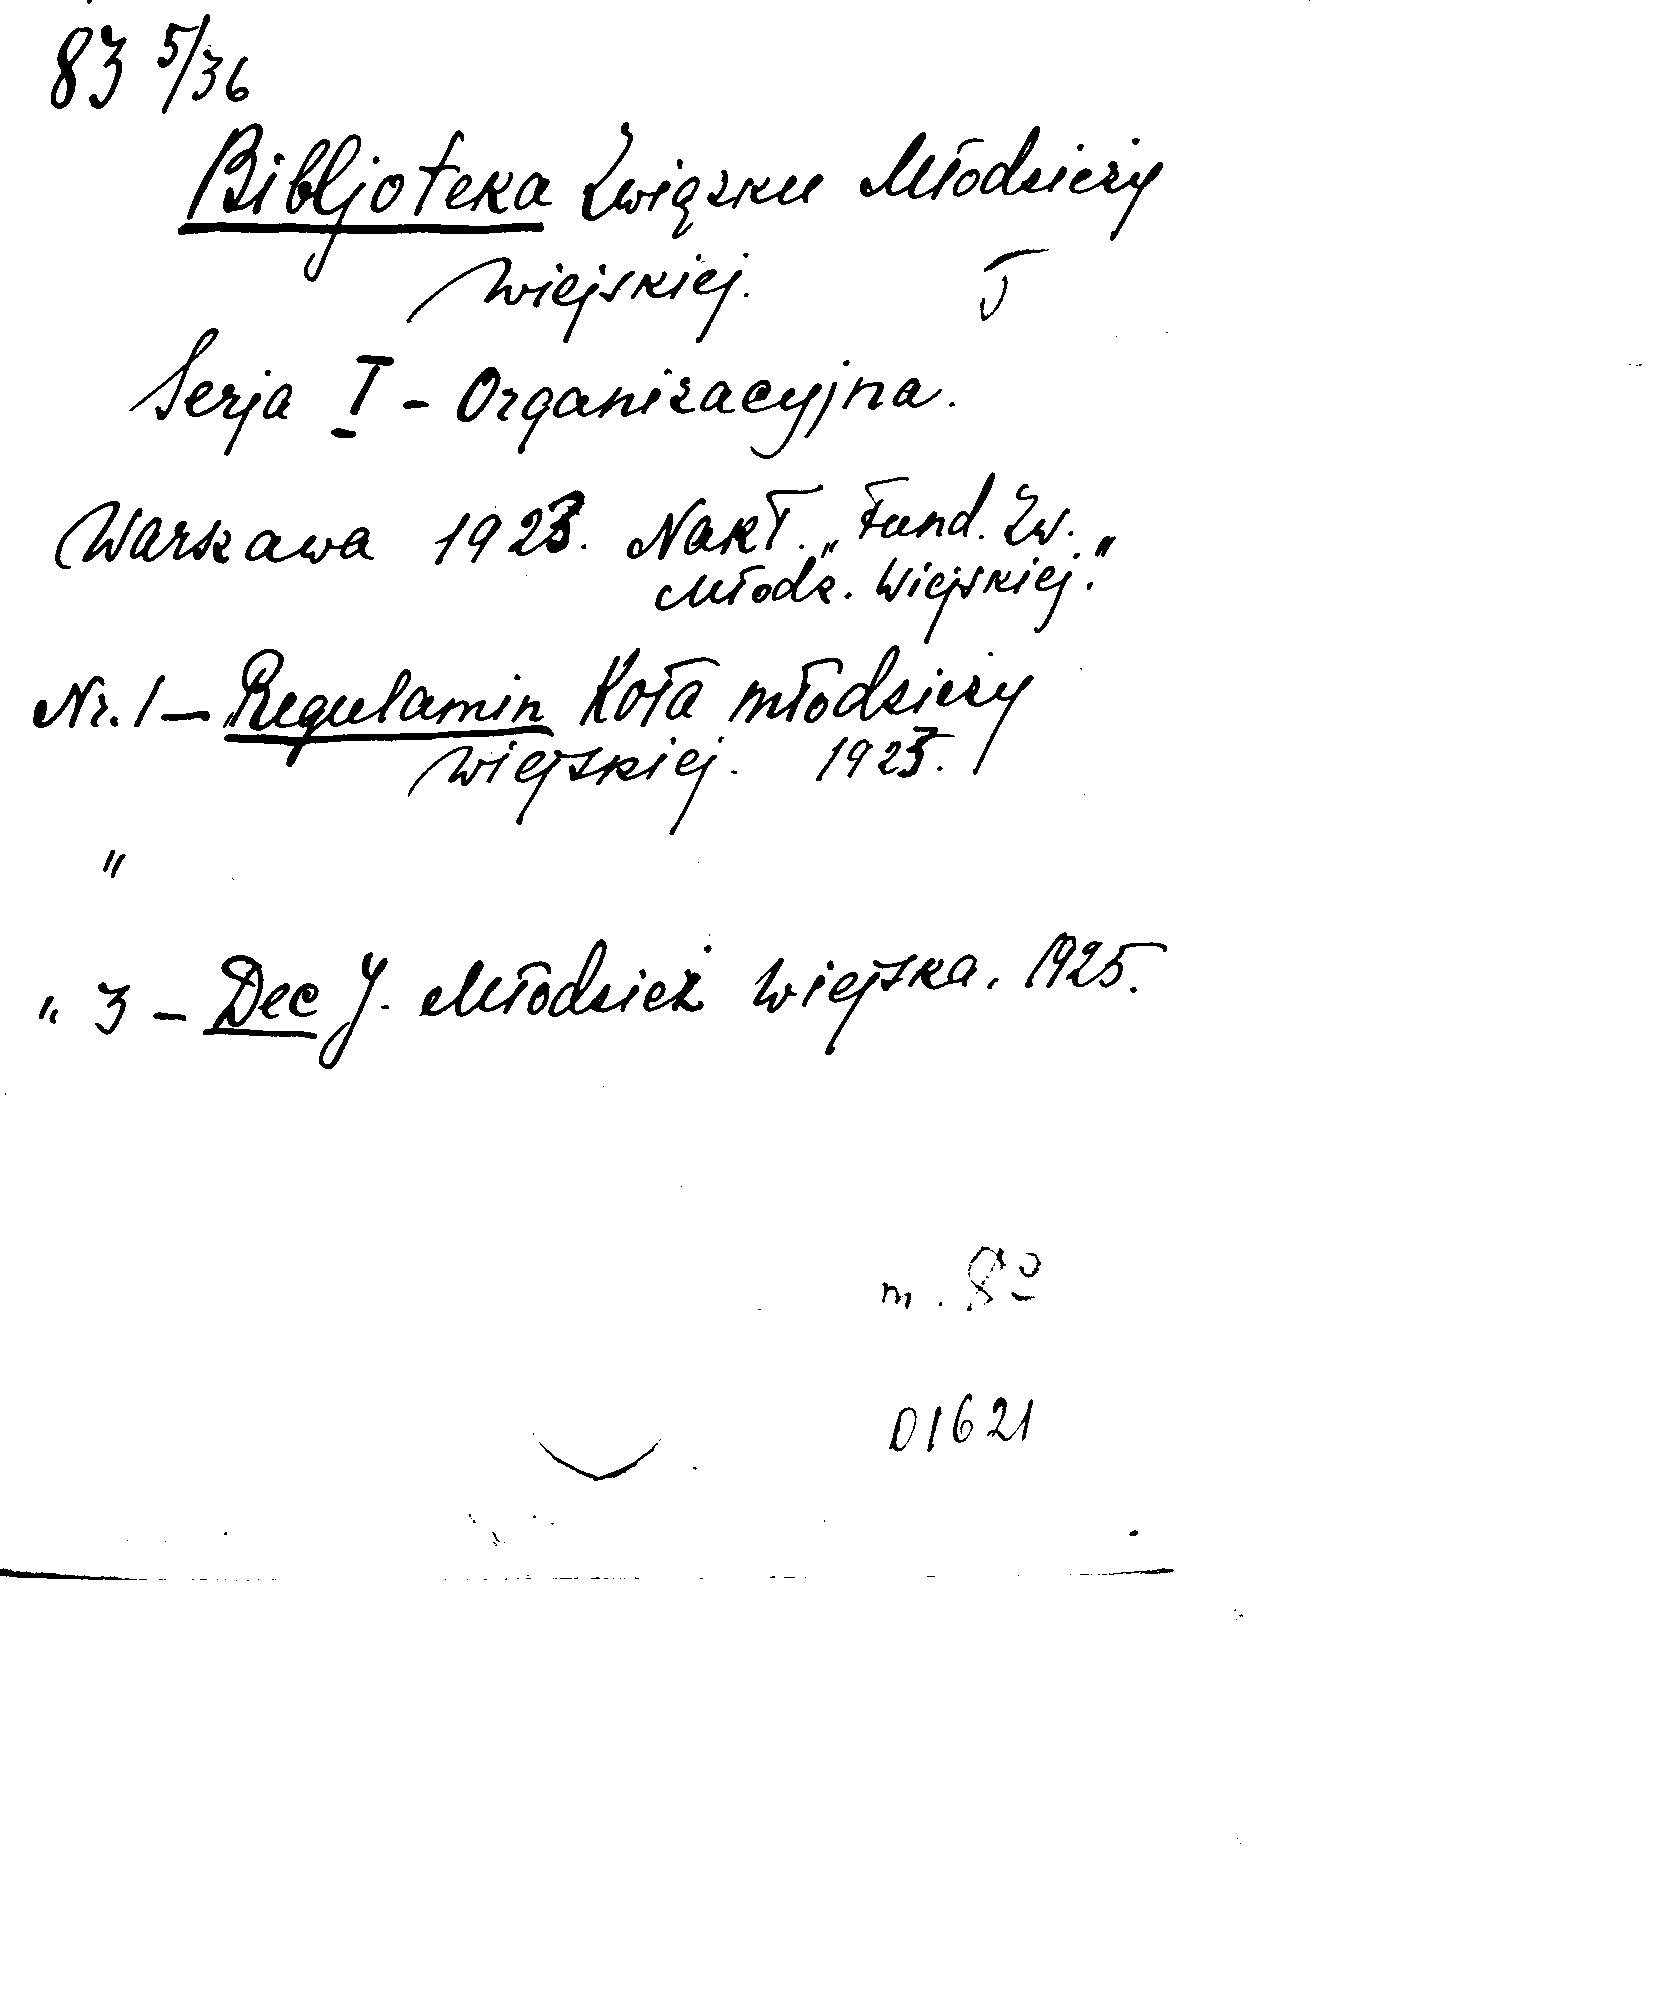 83 5/36
Bibljoteka Związku Młodzieży
Wiejskiej.
Serja I - Organizacyjna.
Warszawa 1923. Nakł. „Fund. Zw.
Młodz. Wiejskiej."
Nr. 1 — Regulamin Koła młodzieży
wiejskiej. 1923.
"
" 3 — Dec J. Młodzież wiejska. 1925.
m. 8º
01621